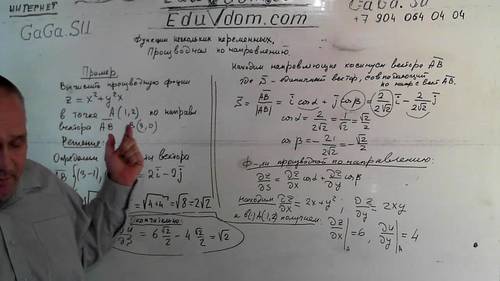 ИНТЕРНЕТ
GaGa.SU
EduVdom.com
GaGa.SU
+7 904 064 04 04
Функции нескольких переменных.
Производная по направлению.
Пример
Вычислить производную функции
z = x² + y²x
в точке A(1,2) по направл
вектора AB B(3,0)
Решение:
Определим вектора
AB (3-1, = 2i - 2j
= √4+4 = √8 = 2√2
= 6 √2/2 - 4 √2/2 = √2
Находим направляющие косинусы вектора AB
где S - единичный вектор, совпадающий
по напр с вект AB.
S = AB/|AB| = i cosα + j cosβ = 2/2√2 i - 2/2√2 j
cosα = 2/2√2 = 1/√2 = √2/2
cosβ = - 2/2√2 = - √2/2
Ф-ла производной по направлению
∂z/∂s = ∂z/∂x cosα + ∂z/∂y cosβ
Находим ∂z/∂x = 2x + y², ∂z/∂y = 2xy
в (·) A(1,2) получаем: ∂z/∂x|A = 6, ∂u/∂y|A = 4